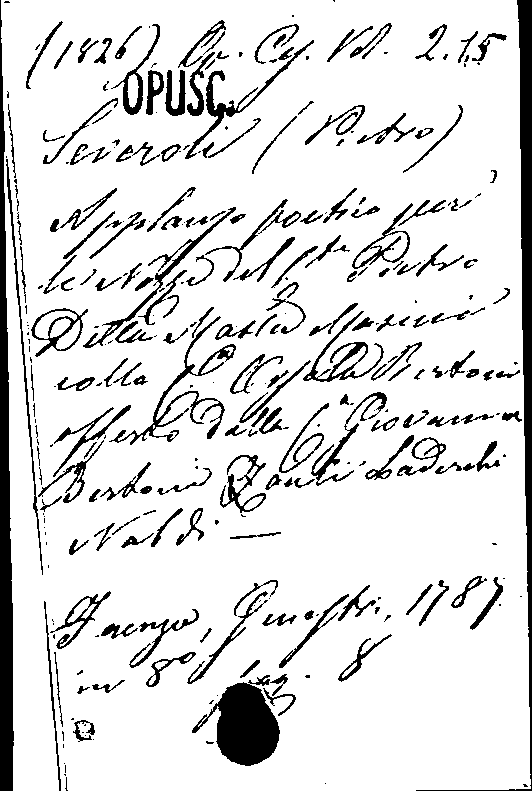 (1826) Op. Cy. Vol. 2.15
OPUSC.
Severoli (Pietro)
Applauso poetico per
le Nozze del C.te Pietro
Della Masini
colla C.a Bertoni
offerto dalla C.a Giovanna
Bertoni Zauli Laderchi
Naldi —
Faenza, Genestri, 1787
in 8º, pag. 8